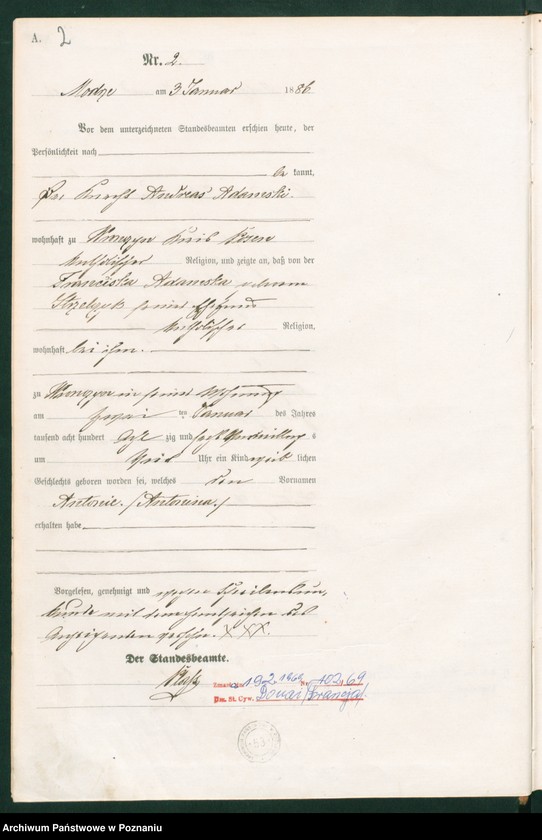 A. 2
Nr. 2.
Modze am 3 Januar 1886.
Vor dem unterzeichneten Standesbeamten erschien heute, der
Persönlichkeit nach
be kannt,
Der Knecht Andreas Adamski
wohnhaft zu Kreis Posen
katholischer Religion, und zeigte an, daß von der
Franciska Adamska geborenen
Strzelczyk seiner Ehefrau
katholischer Religion,
wohnhaft bei ihm.
zu in seiner Wohnung
am zwei ten Januar des Jahres
tausend acht hundert acht zig und sechs Vormittags
um Uhr ein Kind weib lichen
Geschlechts geboren worden sei, welches den Vornamen
Antonie. /Antonina./
erhalten habe
Vorgelesen, genehmigt und wegen Schreibensun,
kunde mit dem Handzeichen des
Anzeigenden versehen. XXX.
Der Standesbeamte.
19.2.1969 Nr. 102/69
Urz. St. Cyw. Douai /Francja/
Archiwum Państwowe w Poznaniu